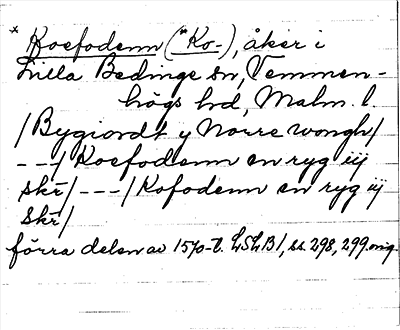 * Koefodenn (*Ko-), åker i
Lilla Bedinge sn, Vemmen-
högs hd, Malm. l.
/Bygiordt y Nörre wongh/
---/Koefodenn en ryg iij
skr̄/---/Kofodenn en ryg ij
skr̄/
förra delen av 1570-t. LSLB1, ss. 298, 299. orig.